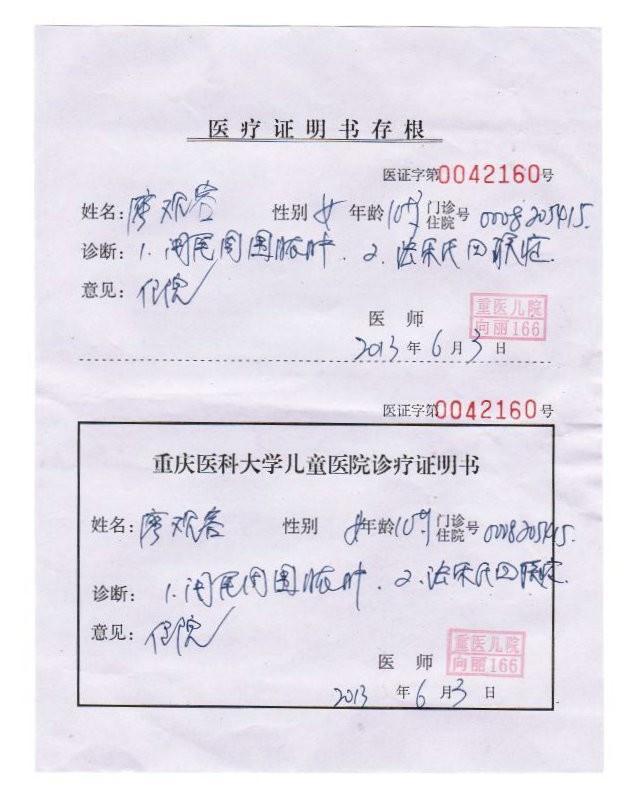 医疗证明书存根
医证字第0042160号
姓名：廖观容 性别 女 年龄 10岁 门诊住院号 0008205415.
诊断：1. 阑尾周围脓肿. 2. 法乐氏四联症.
意见：住院
医师
重医儿院
向丽166
2013年6月3日
医证字第0042160号
重庆医科大学儿童医院诊疗证明书
姓名：廖观容 性别 女 年龄 10岁 门诊住院号 0008205415.
诊断：1. 阑尾周围脓肿. 2. 法乐氏四联症.
意见：住院
重医儿院
向丽166
医师
2013年6月3日